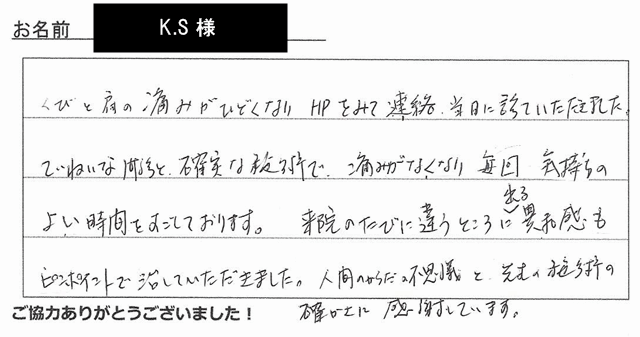 お名前 K.S 様
くびと肩の痛みがひどくなり HPをみて連絡、当日に診ていただきました。
ていねいな施術と、確実な施術で、痛みがなくなり 毎回 気持ちの
よい時間をすごしております。 来院のたびに違うところに出る異和感も
ピンポイントで治していただきました。人間のからだの不思議と、先生の施術の
確かさに 感謝しています。
ご協力ありがとうございました！